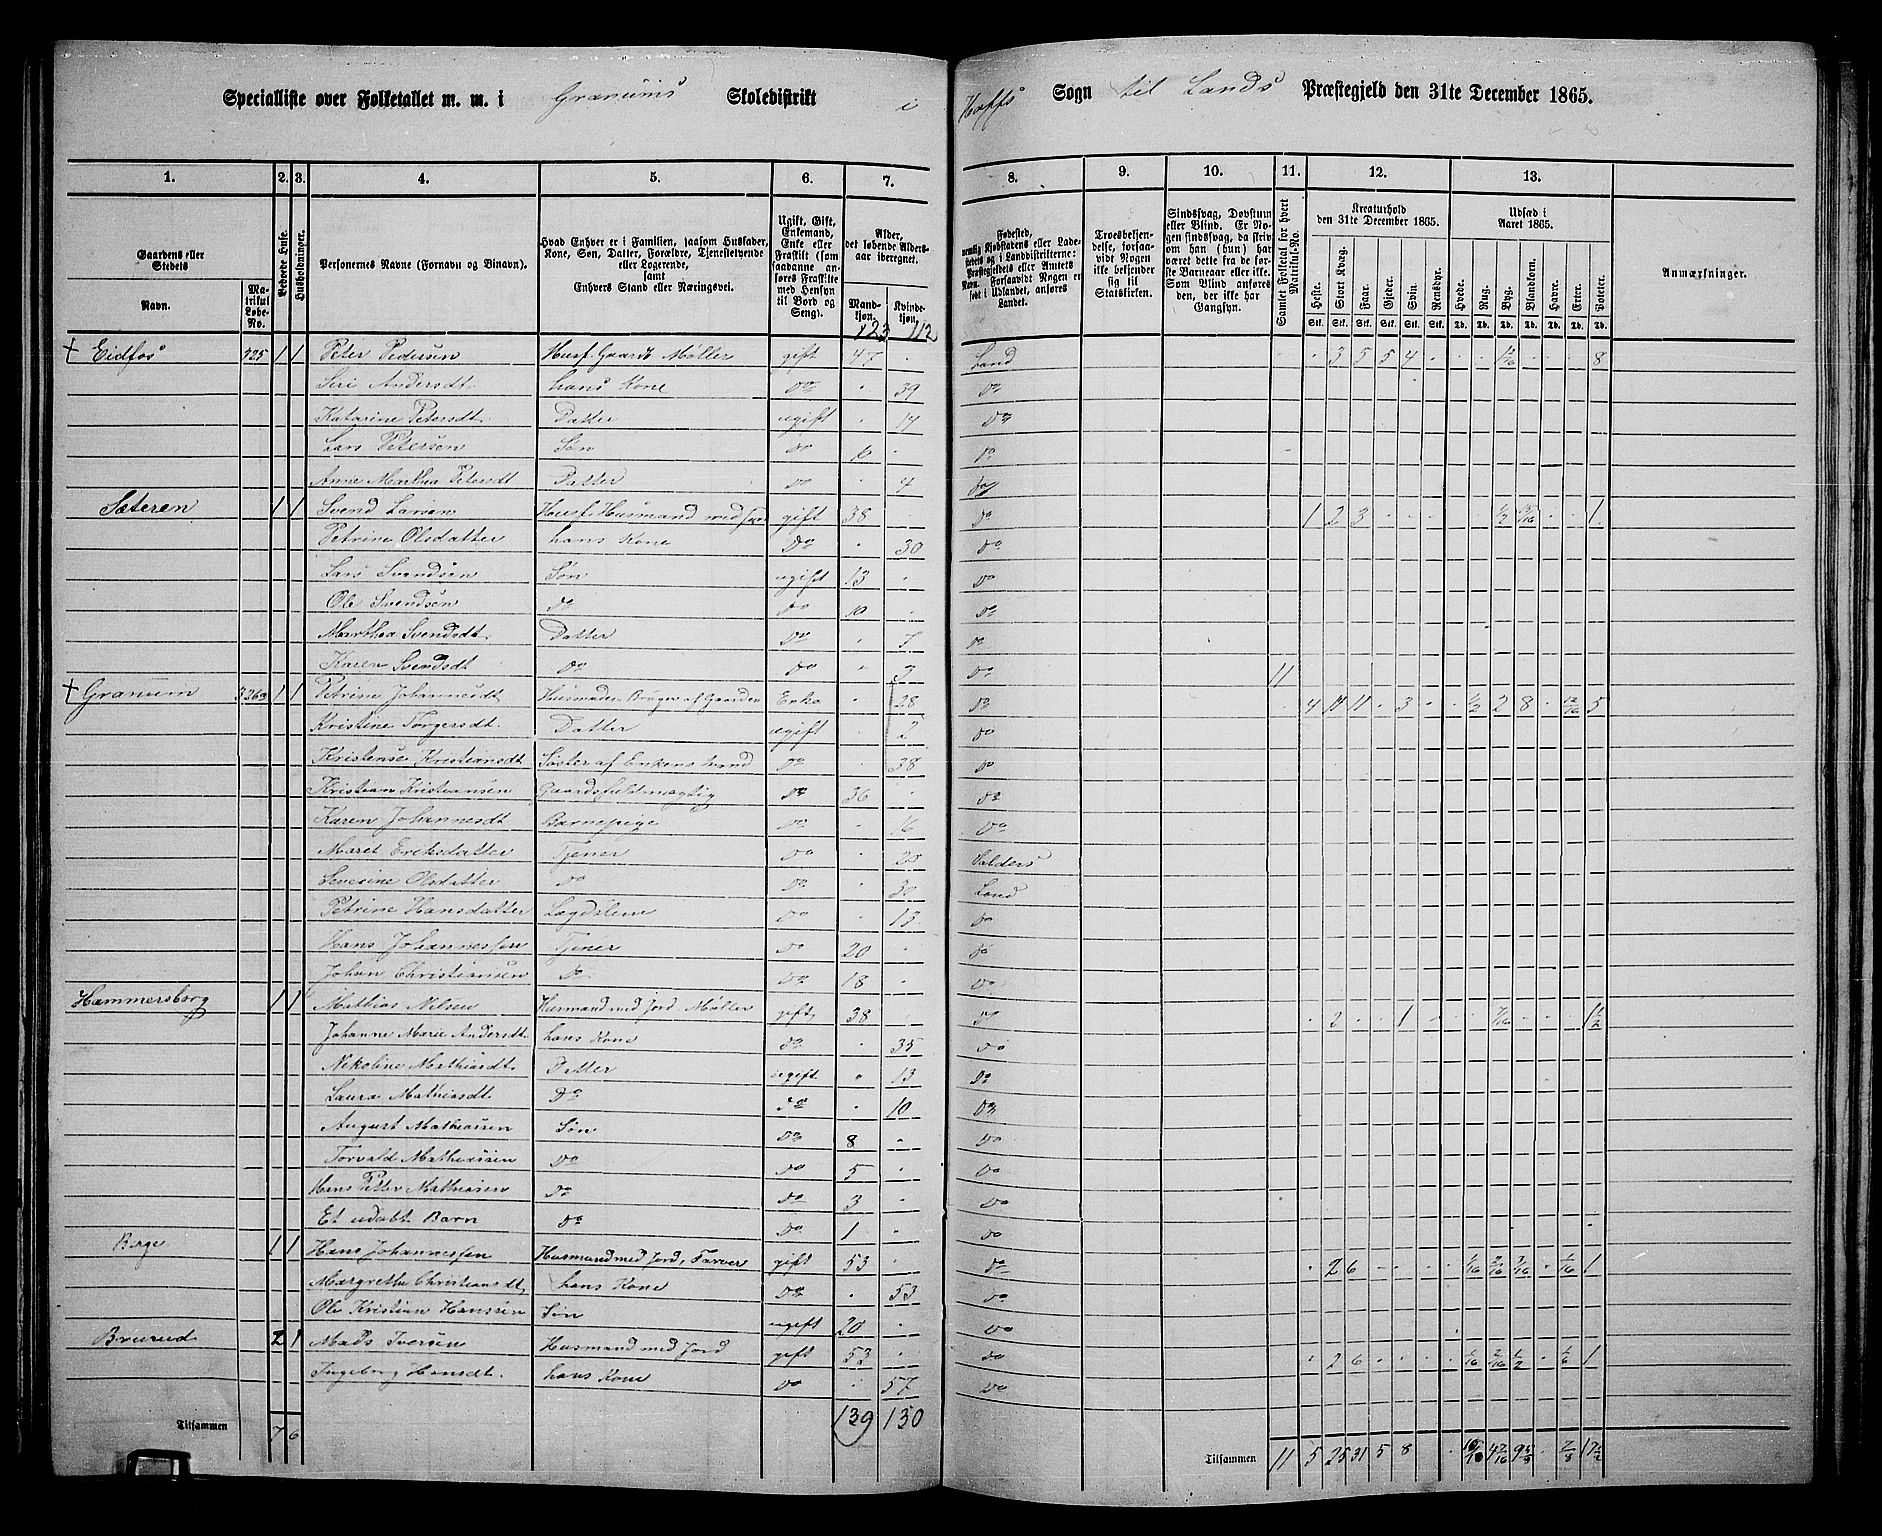 Specialliste over Folketallet m. m. i Granums Skoledistrikt i Hoffs Sogn til Lands Præstegjeld den 31te December 1865.
1. 2. 3. 4. 5. 6. 7. 8. 9. 10. 11. 12. 13.
Gaardens eller Stedets Navn. Matrikul Løbe-No. Beboede Huse. Husholdninger. Personernes Navne (Fornavn og Binavn). Hvad Enhver er i Familien, saasom Husfader, Kone, Søn, Datter, Forældre, Tjenestetyende eller Logerende, samt Enhvers Stand eller Næringsvei. Ugift, Gift, Enkemand, Enke eller Fraskilt (som saadanne anføres Fraskilte med Hensyn til Bord og Seng). Alder, det løbende Aldersaar iberegnet. Mandkjøn. Kvindekjøn. Fødested, nemlig Kjøbstadens eller Ladestedets eller i Landdistrikterne: Præstegjeldets eller Amtets Navn. Forsaavidt Nogen er født i Udlandet, anføres Landet. Troesbekjendelse, forsaavidt Nogen ikke bekjender sig til Statskirken. Sindssvag, Døvstum eller Blind. Er Nogen sindssvag, da skriv om han (hun) har været dette fra de første Barneaar eller ikke. Som Blind anføres den, der ikke har Gangsyn. Samlet Folketal for hvert Matrikul-No. Kreaturhold den 31te December 1865. Heste. Stort Kvæg. Faar. Gjeder. Svin. Rensdyr. Udsæd i Aaret 1865. Hvede. Rug. Byg. Blandkorn. Havre. Erter. Poteter. Anmærkninger.
Stk. Stk. Stk. Stk. Stk. Stk. Td. Td. Td. Td. Td. Td. Td.
123 112
Eidfos 125 1 1 Peter Pedersen Husf. Gaardb Møller gift 47 Land 3 5 5 4 8
Siri Andersdt. hans Kone Do 39 Do
Katarine Petersdt. Datter ugift 14 Do
Lars Petersen Søn Do Do
Anne Marthea Petersdt Datter Do 4 Do
Sæteren 1 1 Svend Larsen Husf. Husmand med Jord gift 38 Do 1 2 3 1/2 1
Petrine Olsdatter hans Kone Do 30 Do
Lars Svendsen Søn ugift 13 Do
Ole Svendsen Do Do 10 Do
Marthea Svendsdt. Datter Do 7 Do
Karen Svendsdt Do Do 3 Do 11
Granum 1 1 Petrine Johannesdt Husmoder Bruger af Gaarden Enke 28 Do 4 11 11 3 1/2 2 8 12/16 5
Kristine Torgersdt. Datter ugift 2 Do
Kristense Kristiansdt Søster af Enkens Mand Do 38 Do
Kristian Kristiansen Gaardsfuldmægtig Do 36 Do
Karen Johannesdt Barnepige Do 16 Do
Maret Eriksdatter Tjener Do 20 Valders
Severine Olsdatter Do Do 30 Land
Petrine Hansdatter Lægdslem Do 13 Do
Hans Johannessen Tjener Do 20 Do
Johan Christiansen Do Do 18 Do
Hammersborg 1 1 Mathias Nilsen Husmand med Jord Møller gift 38 Do 2 1 7/16 1 1/2
Johanne Marie Andersdt. hans Kone Do 35 Do
Nekoline Mathiasdt. Datter ugift 13 Do
Laura Mathiasdt. Do Do 10 Do
August Mathiassen Søn Do 8 Do
Torvald Mathiassen Do Do 5 Do
Hans Petter Mathiasen Do Do 3 Do
Et udøbt Barn Do Do 1 Do
Berge 1 1 Hans Johannessen Husmand med Jord, Farver gift 53 Do 2 6 1/16 2/16 3/16 1/16 1
Margrethe Christiansdt. hans Kone Do 53 Do
Ole Kristian Hanssen Søn ugift 20 Do
Bruerud 2 1 Mads Iversen Husmand med Jord gift 53 Do 2 6 1/16 2/16 1/2 1/6 1
Ingeborg Hansdt. hans Kone Do 57 Do
Tilsammen 7 6 139 130 Tilsammen 11 5 25 31 5 8 7/8 17 1/2